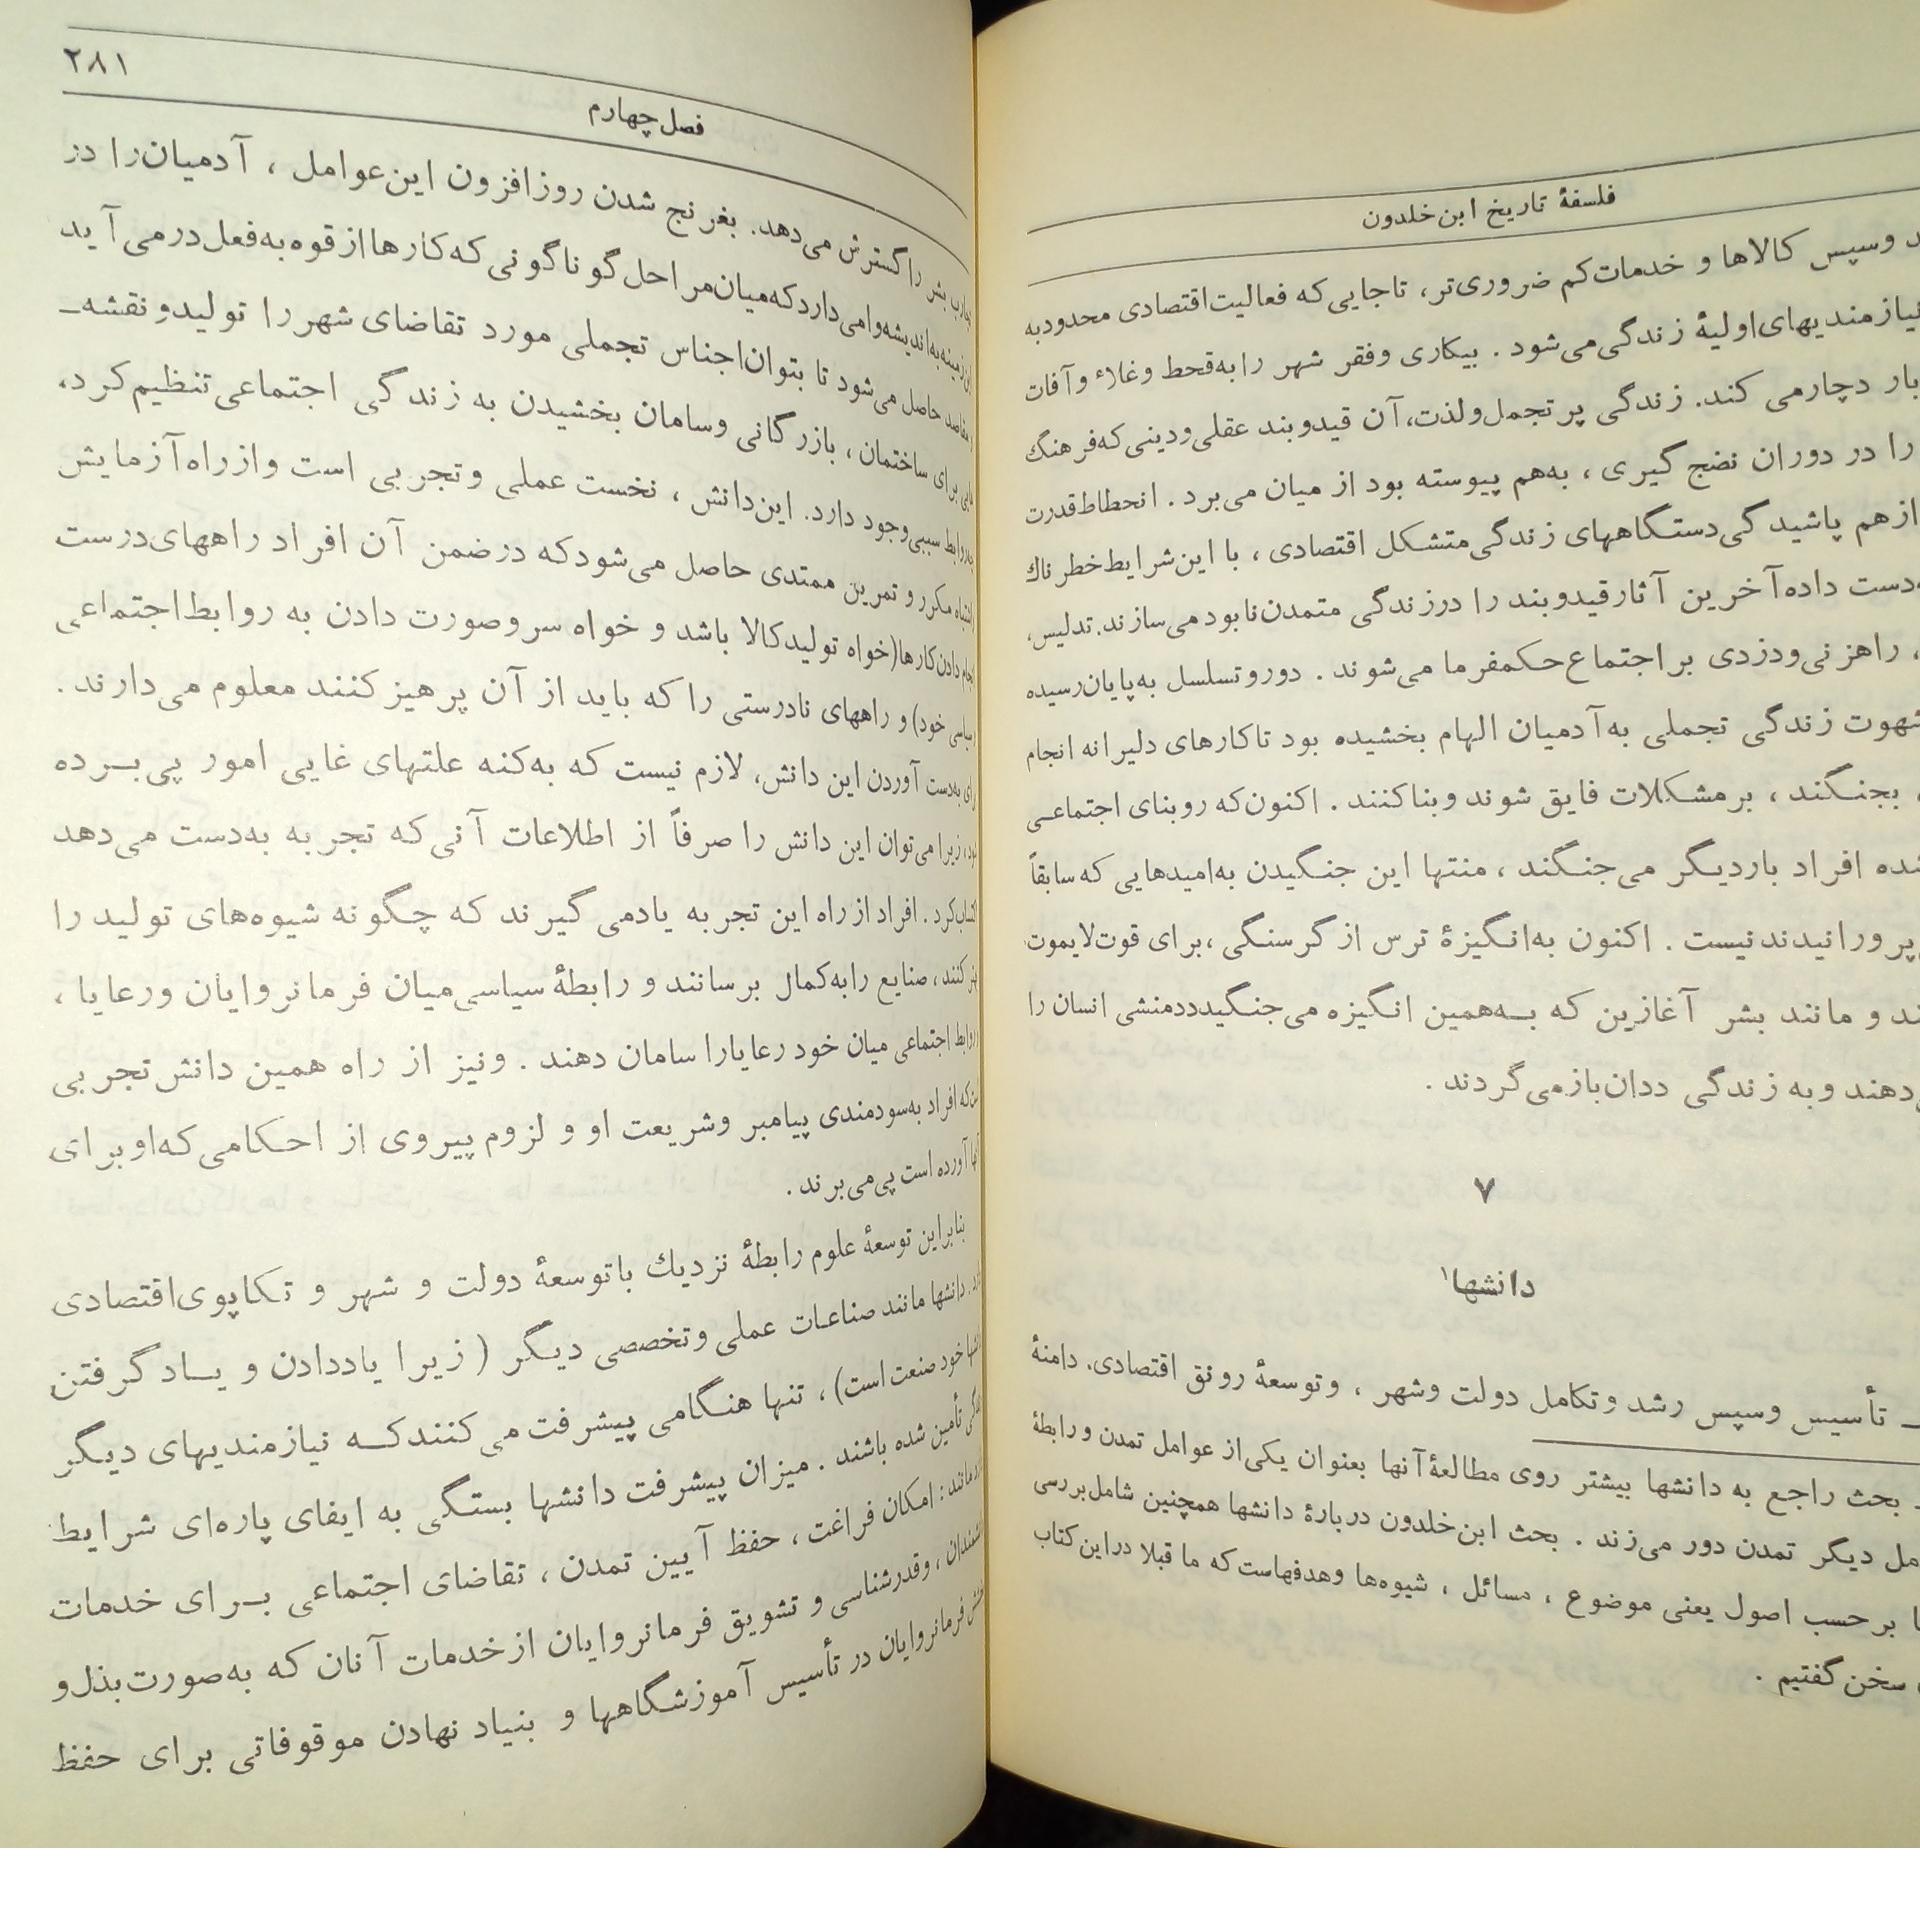 فلسفهٔ تاریخ ابن‌خلدون
وسپس کالاها و خدمات‌کم ضروری‌تر، تاجایی‌که فعالیت‌اقتصادی محدودبه
نیازمندیهای‌اولیهٔ زندگی‌می‌شود . بیکاری وفقر شهر را به‌قحط وغلاء وآفات
بار دچارمی کند. زندگی پرتجمل‌ولذت، آن قیدوبند عقلی‌ودینی‌که‌فرهنگ
را در دوران نضج گیری ، به‌هم پیوسته بود از میان می‌برد . انحطاط‌قدرت
ازهم پاشیدگی‌دستگاههای زندگی‌متشکل اقتصادی ، با این‌شرایط‌خطرناك
دست داده‌آخرین آثارقیدوبند را درزندگی متمدن‌نابودمی‌سازند. تدلیس،
، راهزنی‌ودزدی براجتماع‌حکمفرما می‌شوند . دوروتسلسل به‌پایان‌رسیده
شهوت زندگی تجملی به‌آدمیان الهام بخشیده بود تاکارهای دلیرانه انجام
، بجنگند ، برمشکلات فایق شوند وبناکنند . اکنون‌که روبنای اجتماعی
افراد باردیگر می‌جنگند ، منتها این جنگیدن به‌امیدهایی که سابقاً
پرورانیدندنیست . اکنون به‌انگیزهٔ ترس از گرسنگی ،برای قوت‌لایموت
و مانند بشر آغازین که به‌همین انگیزه می‌جنگیدددمنشی انسان را
دهند وبه زندگی ددان‌بازمی‌گردند .
۷
دانشها۱
ـ تأسیس وسپس رشد وتکامل دولت وشهر ، وتوسعهٔ رونق اقتصادی، دامنهٔ
بحث راجع به دانشها بیشتر روی مطالعهٔ‌آنها بعنوان یکی‌از عوامل تمدن و رابطهٔ
دیگر تمدن دور می‌زند . بحث ابن‌خلدون دربارهٔ دانشها همچنین شامل‌بررسی
برحسب اصول یعنی موضوع ، مسائل ، شیوه‌ها وهدفهاست‌که ما قبلا دراین‌کتاب
سخن‌گفتیم .
۲۸۱
فصل‌چهارم
بشر را گسترش می‌دهد. بغرنج شدن روزافزون این‌عوامل ، آدمیان‌را در
زمینه‌به‌اندیشه‌وامی‌داردکه‌میان‌مراحل‌گوناگونی‌که‌کارهااز‌قوه‌به‌فعل‌درمی‌آید
مقاصد حاصل می‌شود تا بتوان‌اجناس تجملی مورد تقاضای شهر را تولیدو نقشه‌ـ
برای ساختمان ، بازرگانی وسامان بخشیدن به زندگی اجتماعی‌تنظیم‌کرد،
روابط سببی‌وجود دارد. این‌دانش ، نخست عملی وتجربی است وازراه‌آزمایش
مکررو تمرین ممتدی حاصل می‌شودکه درضمن آن افراد راههای‌درست
دادن‌کارها(خواه تولیدکالا باشد و خواه سروصورت دادن به روابط‌اجتماعی
خود) و راههای نادرستی را که باید از آن پرهیزکنند معلوم می‌دارند .
به‌دست آوردن این دانش، لازم نیست که به‌کنه علتهای غایی امور پی‌بـرده
زیرا می‌توان این دانش را صرفاً از اطلاعات آنی‌که تجربه به‌دست می‌دهد
کرد . افراد ازراه این تجربه یادمی گیرند که چگونه شیوه‌های تولید را
کنند ، صنایع رابه‌کمال برسانند و رابطهٔ سیاسی‌میان فرمانروایان ورعایا ،
اجتماعی میان خود رعایارا سامان دهند . ونیز از راه همین دانش‌تجربی
افراد به‌سودمندی پیامبر وشریعت او و لزوم پیروی از احکامی‌که‌اوبرای
آورده است پی‌می‌برند .
بنابراین توسعهٔ علوم رابطهٔ نزدیك باتوسعهٔ دولت و شهر و تکاپوی‌اقتصادی
دانشها مانند صناعات عملی وتخصصی دیگر ( زیرا یاددادن و یـاد گرفتن
خود صنعت است) ، تنها هنگامی پیشرفت می کنندکـه نیازمندیهای دیگر
تأمین شده باشند . میزان پیشرفت دانشها بستگی به ایفای پاره‌ای شرایط
مانند: امکان فراغت ، حفظ آیین تمدن ، تقاضای اجتماعی بـرای خدمات
، وقدرشناسی و تشویق فرمانروایان ازخدمات آنان که به‌صورت‌بذل‌و
فرمانروایان در تأسیس آموزشگاهها و بنیاد نهادن موقوفاتی برای حفظ